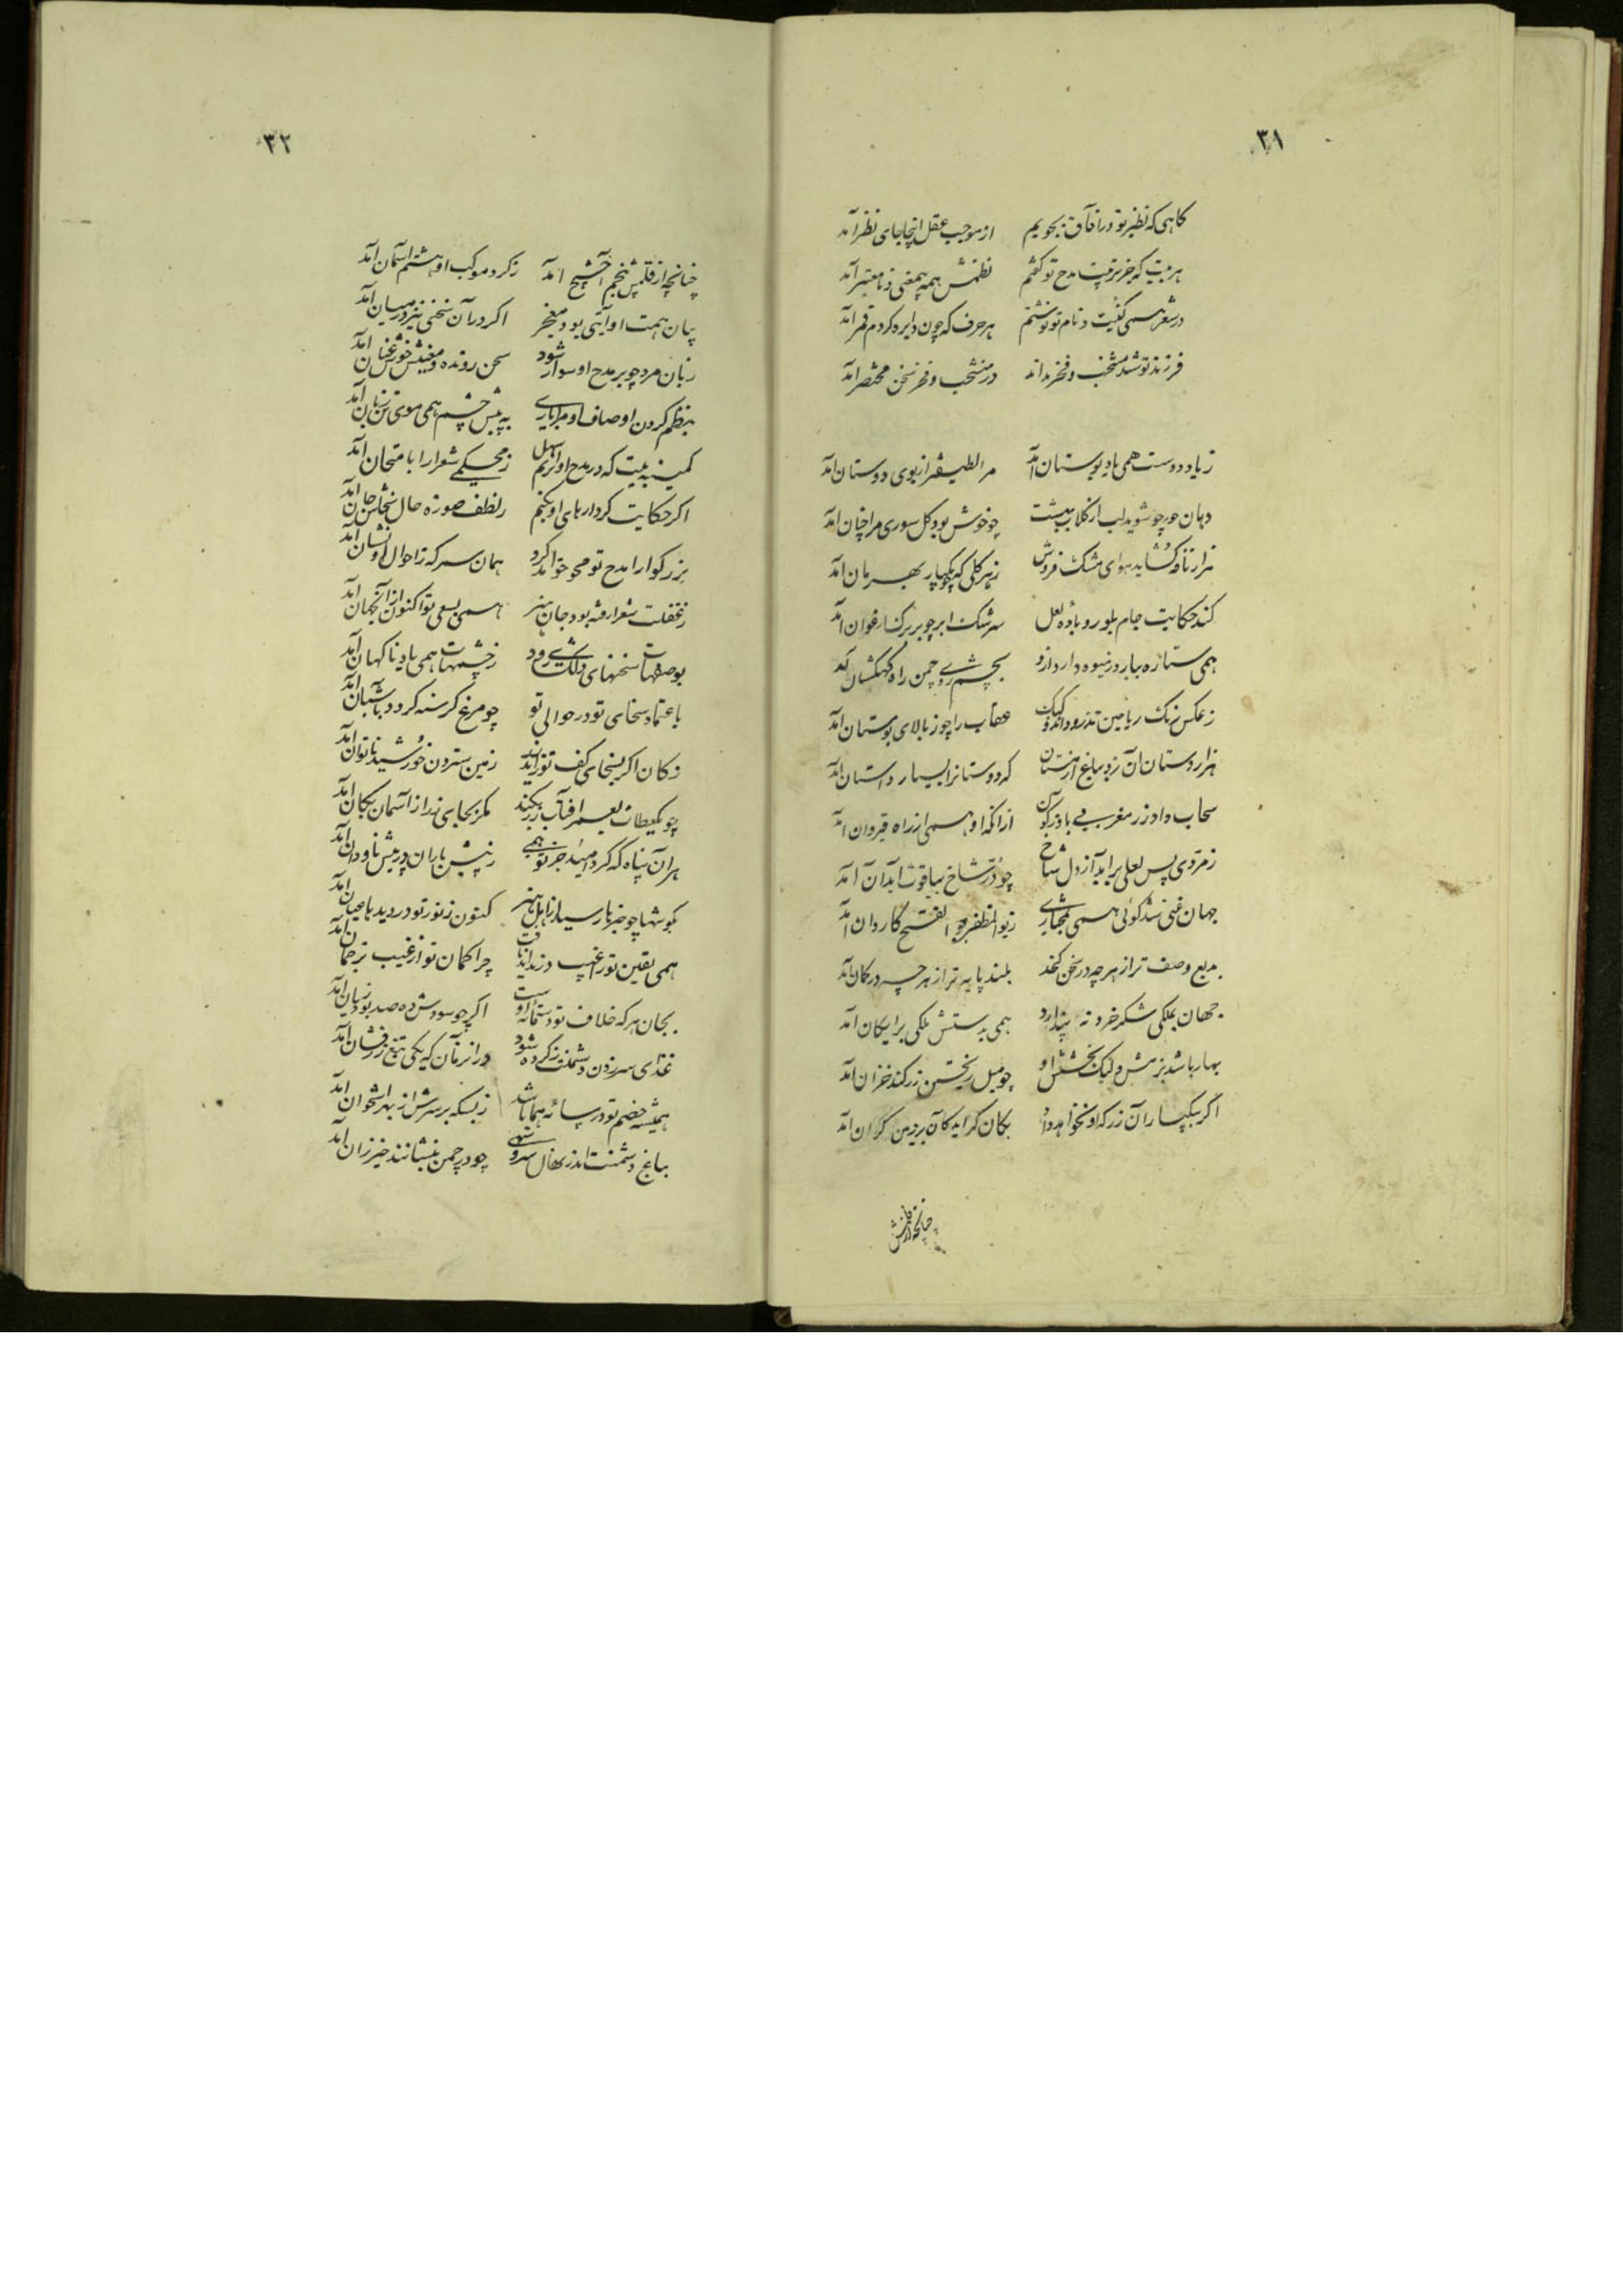 ۳۱
کاهی که نظیر تو در آفاق بجویم از موجب عقل اینجا جای نظر آمد
هر بیت که جز تربیت مدح تو گفتم نظمش همه بیمعنی و نامعتبر آمد
در شعر همی کنیت و نام تو نوشتم هر حرف که چون دایره کردم قمر آمد
فرزند تو شد منتخب و فخر بداند در منتخب و فخر سخن مختصر آمد
ز یاد دوست همی باد بوستان آمد مرا لطیفتر از بوی دوستان آمد
دهان حور چو شوید لب از گلاب بهشت چو خوش بود گل سوری مرا چنان آمد
هزار نافه گشاید هوای مشک فروش ز هر گلی که بکهسار بهرمان آمد
کند حکایت جام بلور و باده لعل سرشک ابر چو بر برگ ارغوان آمد
همی ستاره ببارد ز میوه دار درو بچشم روی چمن راه کهکشان آمد
ز عکس رنگ ریاحین تذرو داند و کبک عقاب را چو ز بالای بوستان آمد
هزاردستان آن زد بباغ از دستان که دوستانرا بسیار داستان آمد
سحاب داد زر مغربی بباد از آنکه او همی از راه قیروان آمد
زمردی پس لعلی برآید از دل شاخ چو در شاخ بیاقوت آبدان آمد
جهان غنی شد گوئی همی ز بوالمظفر بوالفتح کاروان آمد
بدیع وصف تر از هر چه در سخن گنجد بلند پایه تر از هر چه در گمان آمد
جهان بملکی شکر خرد نه پندارد همی بدستش ملکی برایگان آمد
بهار باشد بزمش ولیک بخشش او چو میل ریختن زر کند خزان آمد
اگر بیکبار آن زر که او نخواهد داد بکان گراید کان بر زمین گران آمد
چنانچه از قلمش
۳۲
چنانچه از قلمش پنجم آخشیج آمد ز گرد موکب او هشتم آسمان آمد
بیان همت او آیتی بود معجز اگر در آن سخنی نیز در میان آمد
زبان مرد چو بر مدح او سوار شود سخن رونده و معنیش خوش عنان آمد
بنظم کردن اوصاف او مرا باری به پیش چشم همی موی تن زبان آمد
کمینه بیت که در مدح او آریم ز محکمی شعرا را بامتحان آمد
اگر حکایت کردارهای او بکنم ز لطف صورة حال سخاش جان آمد
بزرگوارا مدح تو محو خواهد کرد همان سمر که ز احوال او نشان آمد
ز غفلت شعرا رفته بود جان هنر همی بسعی تو اکنون از آنجهان آمد
بوصفهات سخنهای دلکشی رود ز خشمهات همی باد ناگهان آمد
باعتماد سخای تو در حوالی تو چو مرغ گرسنه گردد بآشیان آمد
ز کان اگر بسخای کف تو زر آید زمین سترون خورشید ناتوان آمد
چو یکعطات بعمر آفتاب زر بکند مگر بجای زر از آسمان بکان آمد
هر آن پناه که گرد امید جز تو همی ز پیش باران در پیش ناودان آمد
بگوشها چو خبر بار سیار اهل هنر کنون ز نور تو در دیدها عیان آمد
همی یقین تو در غیب چرا گمان تو از غیب ترجمان آمد
بجان هر که خلاف تو دستمایه اوست اگر چو سودش ده صد بود زیان آمد
غذای سر زدن دشمنت ز گرده شود در آنزمان که یکی تیغ زرفشان آمد
همیشه خصم تو در سایه هما باشد ز بسکه بر سرش از بهر استخوان آمد
بباغ دشمنت اندر نهال سروی چو در چمن بنشانند خیزران آمد